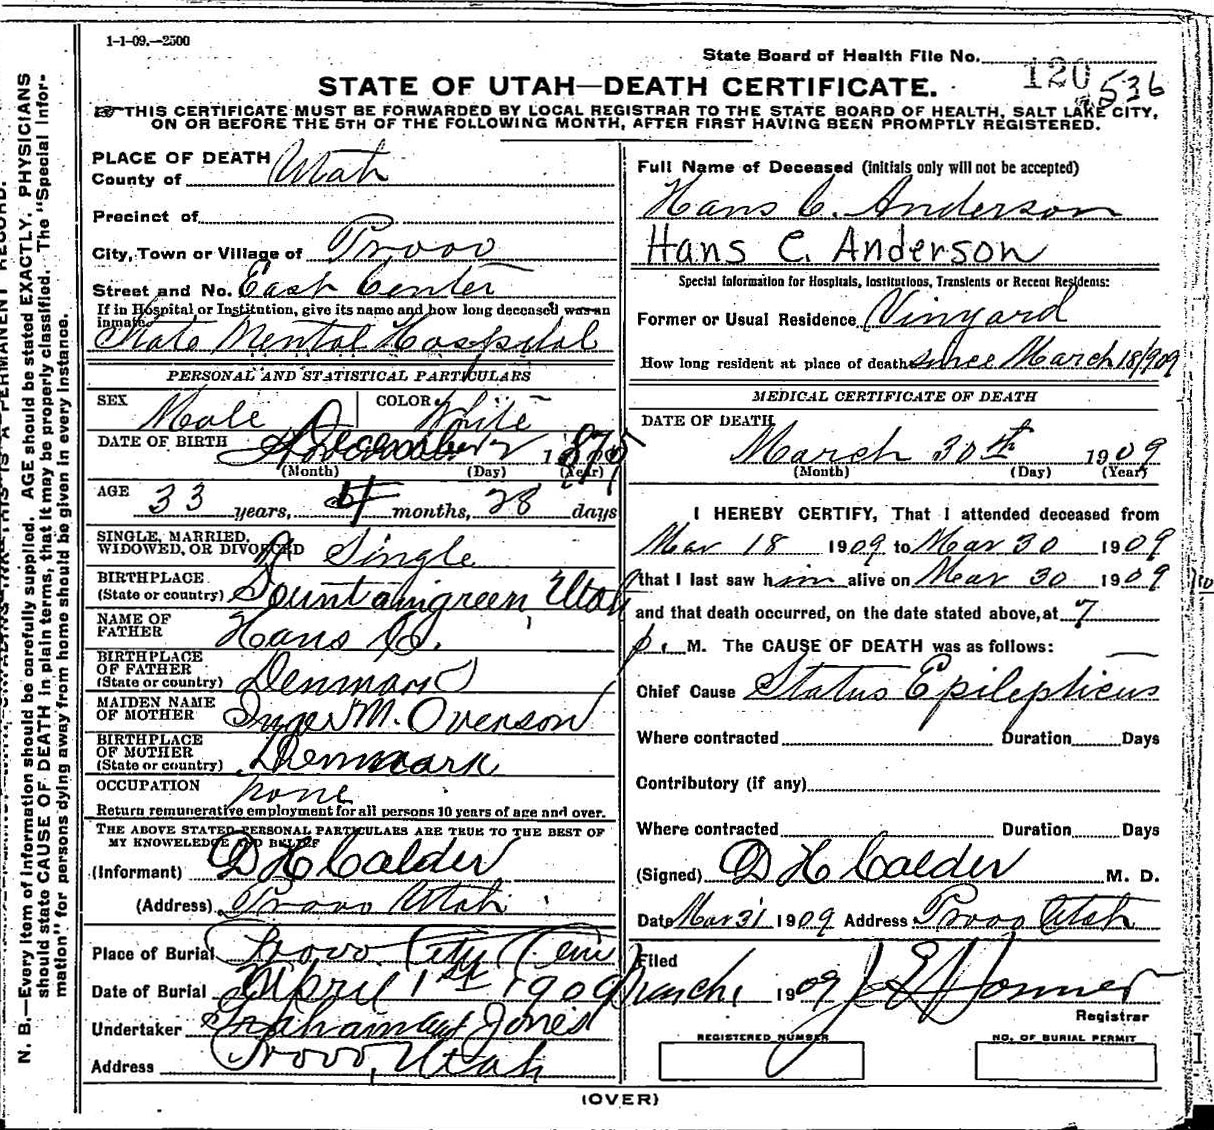 1-1-09.—2500
State Board of Health File No. 120 536
STATE OF UTAH—DEATH CERTIFICATE.
THIS CERTIFICATE MUST BE FORWARDED BY LOCAL REGISTRAR TO THE STATE BOARD OF HEALTH, SALT LAKE CITY,
ON OR BEFORE THE 5TH OF THE FOLLOWING MONTH, AFTER FIRST HAVING BEEN PROMPTLY REGISTERED.
PLACE OF DEATH
County of Utah
Precinct of
City, Town or Village of Provo
Street and No. East Center
If in Hospital or Institution, give its name and how long deceased was an
inmate.
State Mental Hospital
PERSONAL AND STATISTICAL PARTICULARS
SEX Male COLOR White
DATE OF BIRTH 187
(Month) (Day) (Year)
AGE 33 years, 4 months, 28 days
SINGLE, MARRIED,
WIDOWED, OR DIVORCED Single
BIRTHPLACE
(State or country) Fountaingreen Utah
NAME OF
FATHER Hans C.
BIRTHPLACE
OF FATHER
(State or country) Denmark
MAIDEN NAME
OF MOTHER Inger M. Overson
BIRTHPLACE
OF MOTHER
(State or country) Denmark
OCCUPATION none
Return remunerative employment for all persons 10 years of age and over.
THE ABOVE STATED PERSONAL PARTICULARS ARE TRUE TO THE BEST OF
MY KNOWELEDGE AND BELIEF
(Informant) D H Calder
(Address) Provo Utah
Place of Burial Provo City Cem
Date of Burial April 1st 1909
Undertaker Graham and Jones
Address Provo, Utah
Full Name of Deceased (initials only will not be accepted)
Hans C. Anderson
Hans C. Anderson
Special Information for Hospitals, Institutions, Transients or Recent Residents:
Former or Usual Residence Vinyard
How long resident at place of death since March 18/909
MEDICAL CERTIFICATE OF DEATH
DATE OF DEATH
March 30th 1909
(Month) (Day) (Year)
I HEREBY CERTIFY, That I attended deceased from
Mar 18 1909 to Mar 30 1909
that I last saw him alive on Mar 30 1909
and that death occurred, on the date stated above, at 7
p. M. The CAUSE OF DEATH was as follows:
Chief Cause Status Epilepticus
Where contracted Duration Days
Contributory (if any)
Where contracted Duration Days
(Signed) D H Calder M. D.
Date Mar 31 1909 Address Provo Utah
Filed
March, 1909
Registrar
REGISTERED NUMBER
NO. OF BURIAL PERMIT
(OVER)
N. B.—Every item of information should be carefully supplied. AGE should be stated EXACTLY. PHYSICIANS
should state CAUSE OF DEATH in plain terms, that it may be properly classified. The "Special Infor-
mation" for persons dying away from home should be given in every instance.